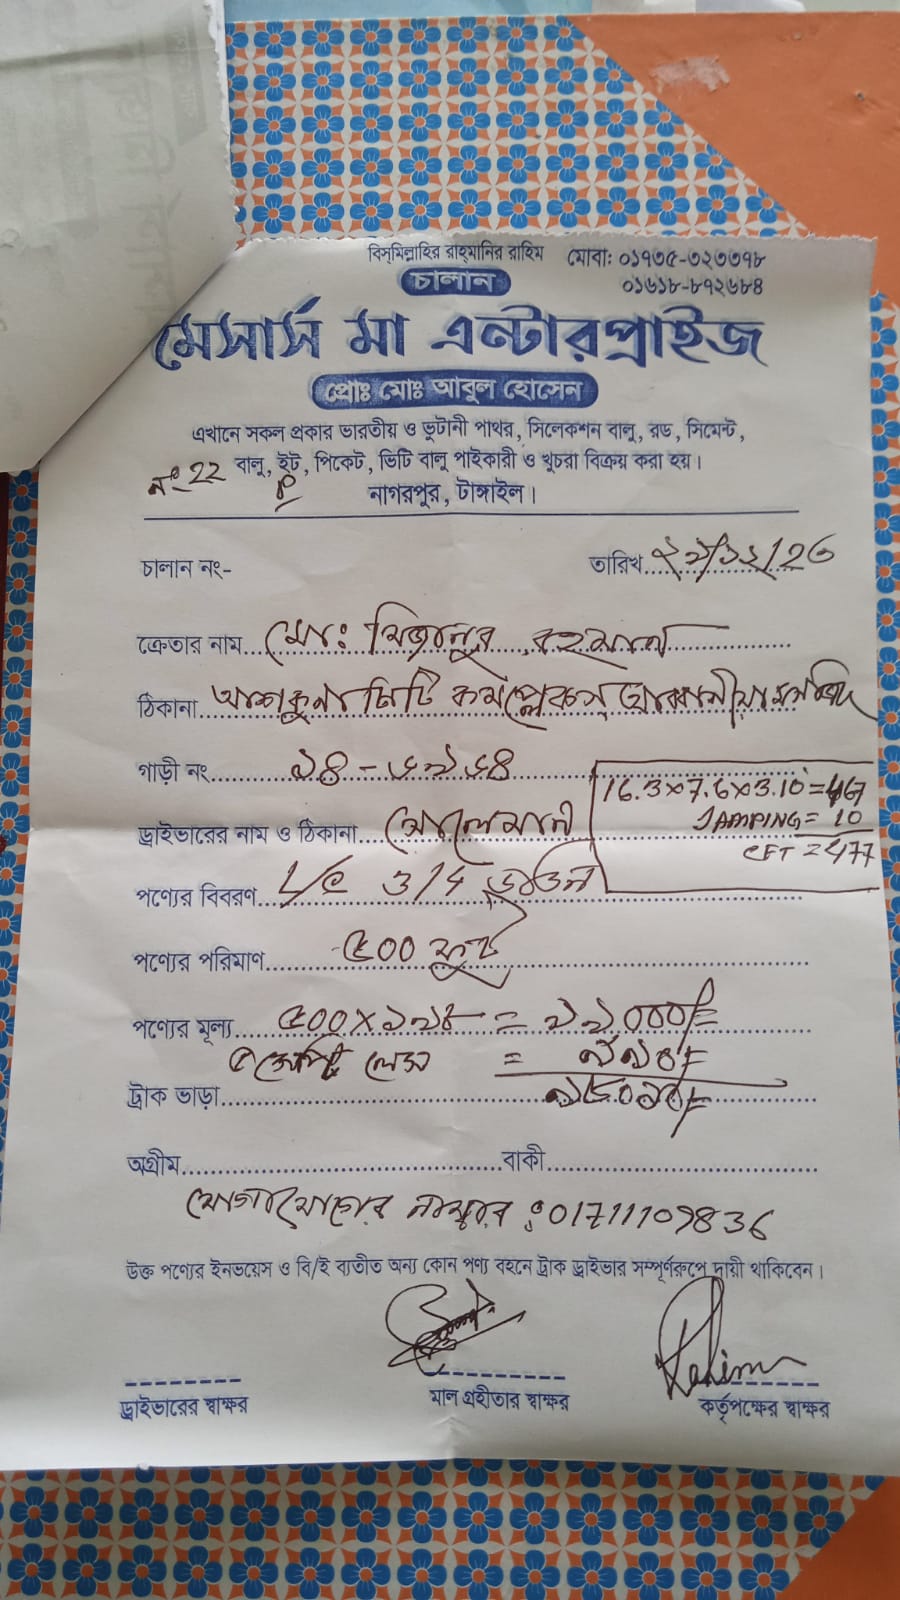 বিস্‌মিল্লাহির রাহ্‌মানির রাহিম
মোবা: ০১৭৩৫-৩২৩৩৭৮
০১৬১৮-৮৭২৬৮৪
চালান
মেসার্স মা এন্টারপ্রাইজ
প্রোঃ মোঃ আবুল হোসেন
এখানে সকল প্রকার ভারতীয় ও ভুটানী পাথর, সিলেকশন বালু, রড, সিমেন্ট,
বালু, ইট, পিকেট, ভিটি বালু পাইকারী ও খুচরা বিক্রয় করা হয়।
নং-22
নাগরপুর, টাঙ্গাইল।
চালান নং-
তারিখ
ক্রেতার নাম মো: মিজানুর রহমান
ঠিকানা আশকুনা সিটি কমপ্লেকস্
গাড়ী নং ১৪-৬৭৬৪
16.3x7.6x3.10=467
JAMPING=10
CFT=477
ড্রাইভারের নাম ও ঠিকানা
পণ্যের বিবরণ L/C 3/4
পণ্যের পরিমাণ ৫০০ ফুট
পণ্যের মূল্য ৫০০X১৯৮ = ৯৯০০০/=
লেস =
ট্রাক ভাড়া
অগ্রীম বাকী
যোগাযোগের নাম্বার : 01711109836
উক্ত পণ্যের ইনভয়েস ও বি/ই ব্যতীত অন্য কোন পণ্য বহনে ট্রাক ড্রাইভার সম্পূর্ণরুপে দায়ী থাকিবেন।
ড্রাইভারের স্বাক্ষর
মাল গ্রহীতার স্বাক্ষর
কর্তৃপক্ষের স্বাক্ষর